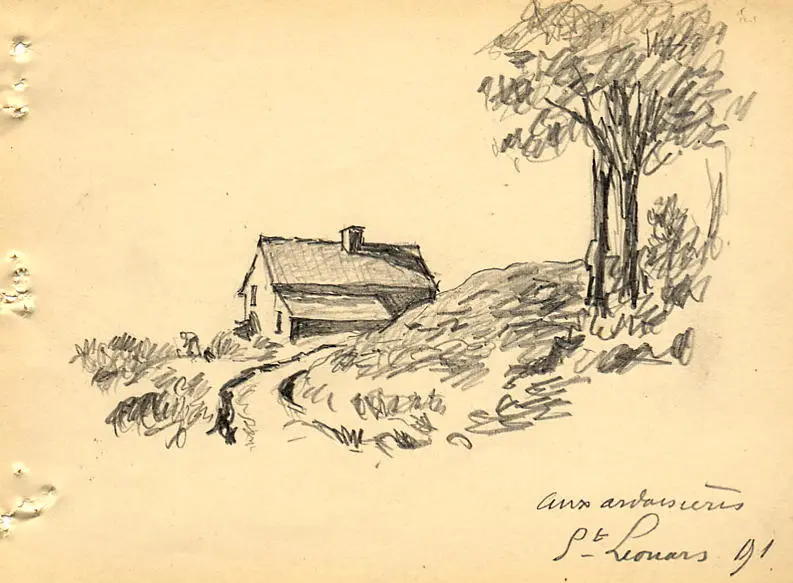 aux ardoisières
St Léonars 191